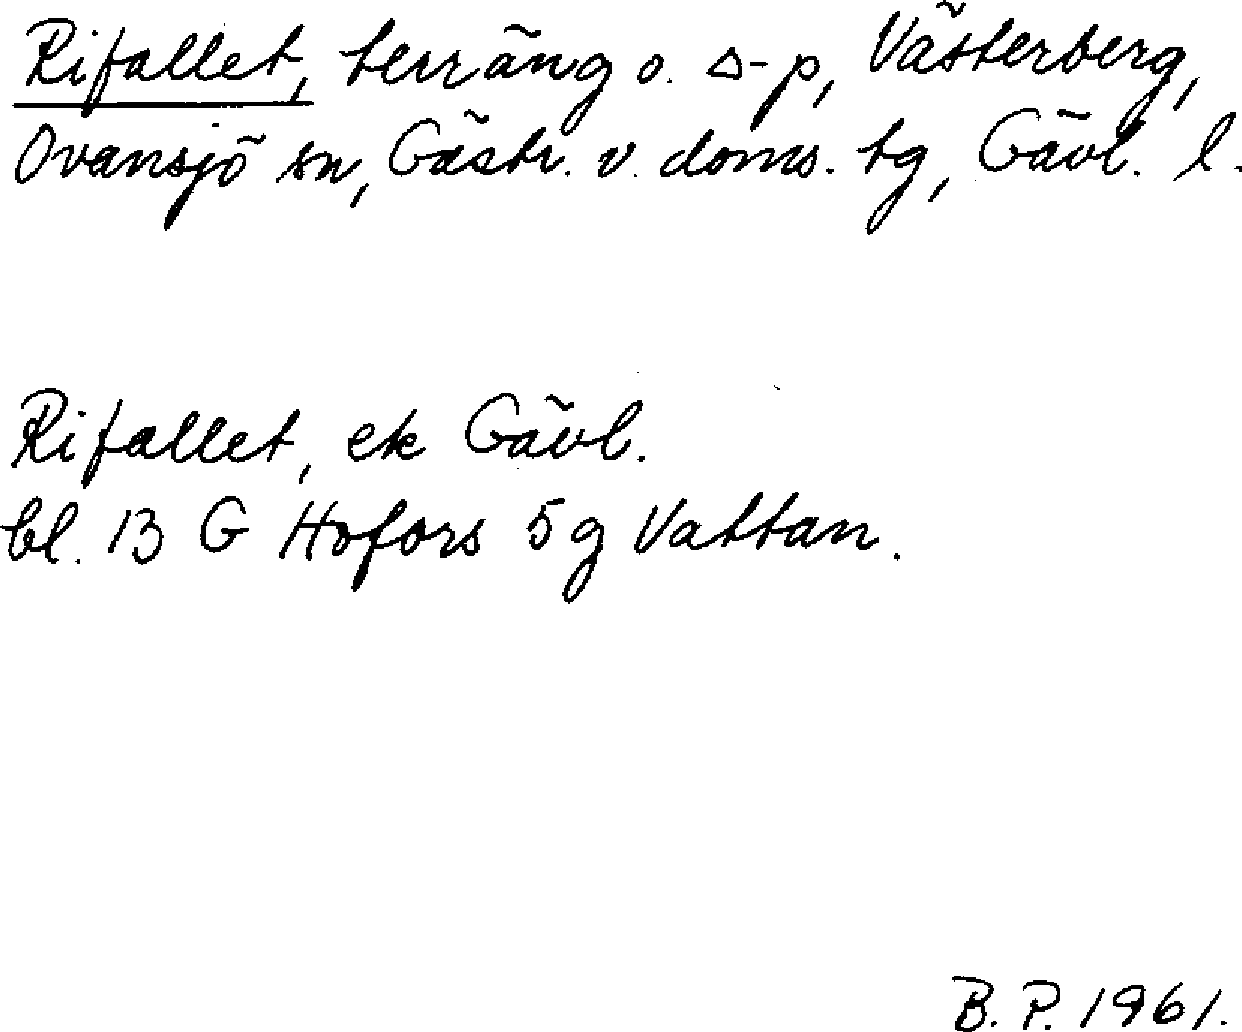 Rifallet, terräng o. Δ-p, Västerberg,
Ovansjö sn, Gästr. v. doms. tg, Gävl. l.
Rifallet, ek Gävl.
bl. 13 G Hofors 5 g Vattan.
B. P. 1961.